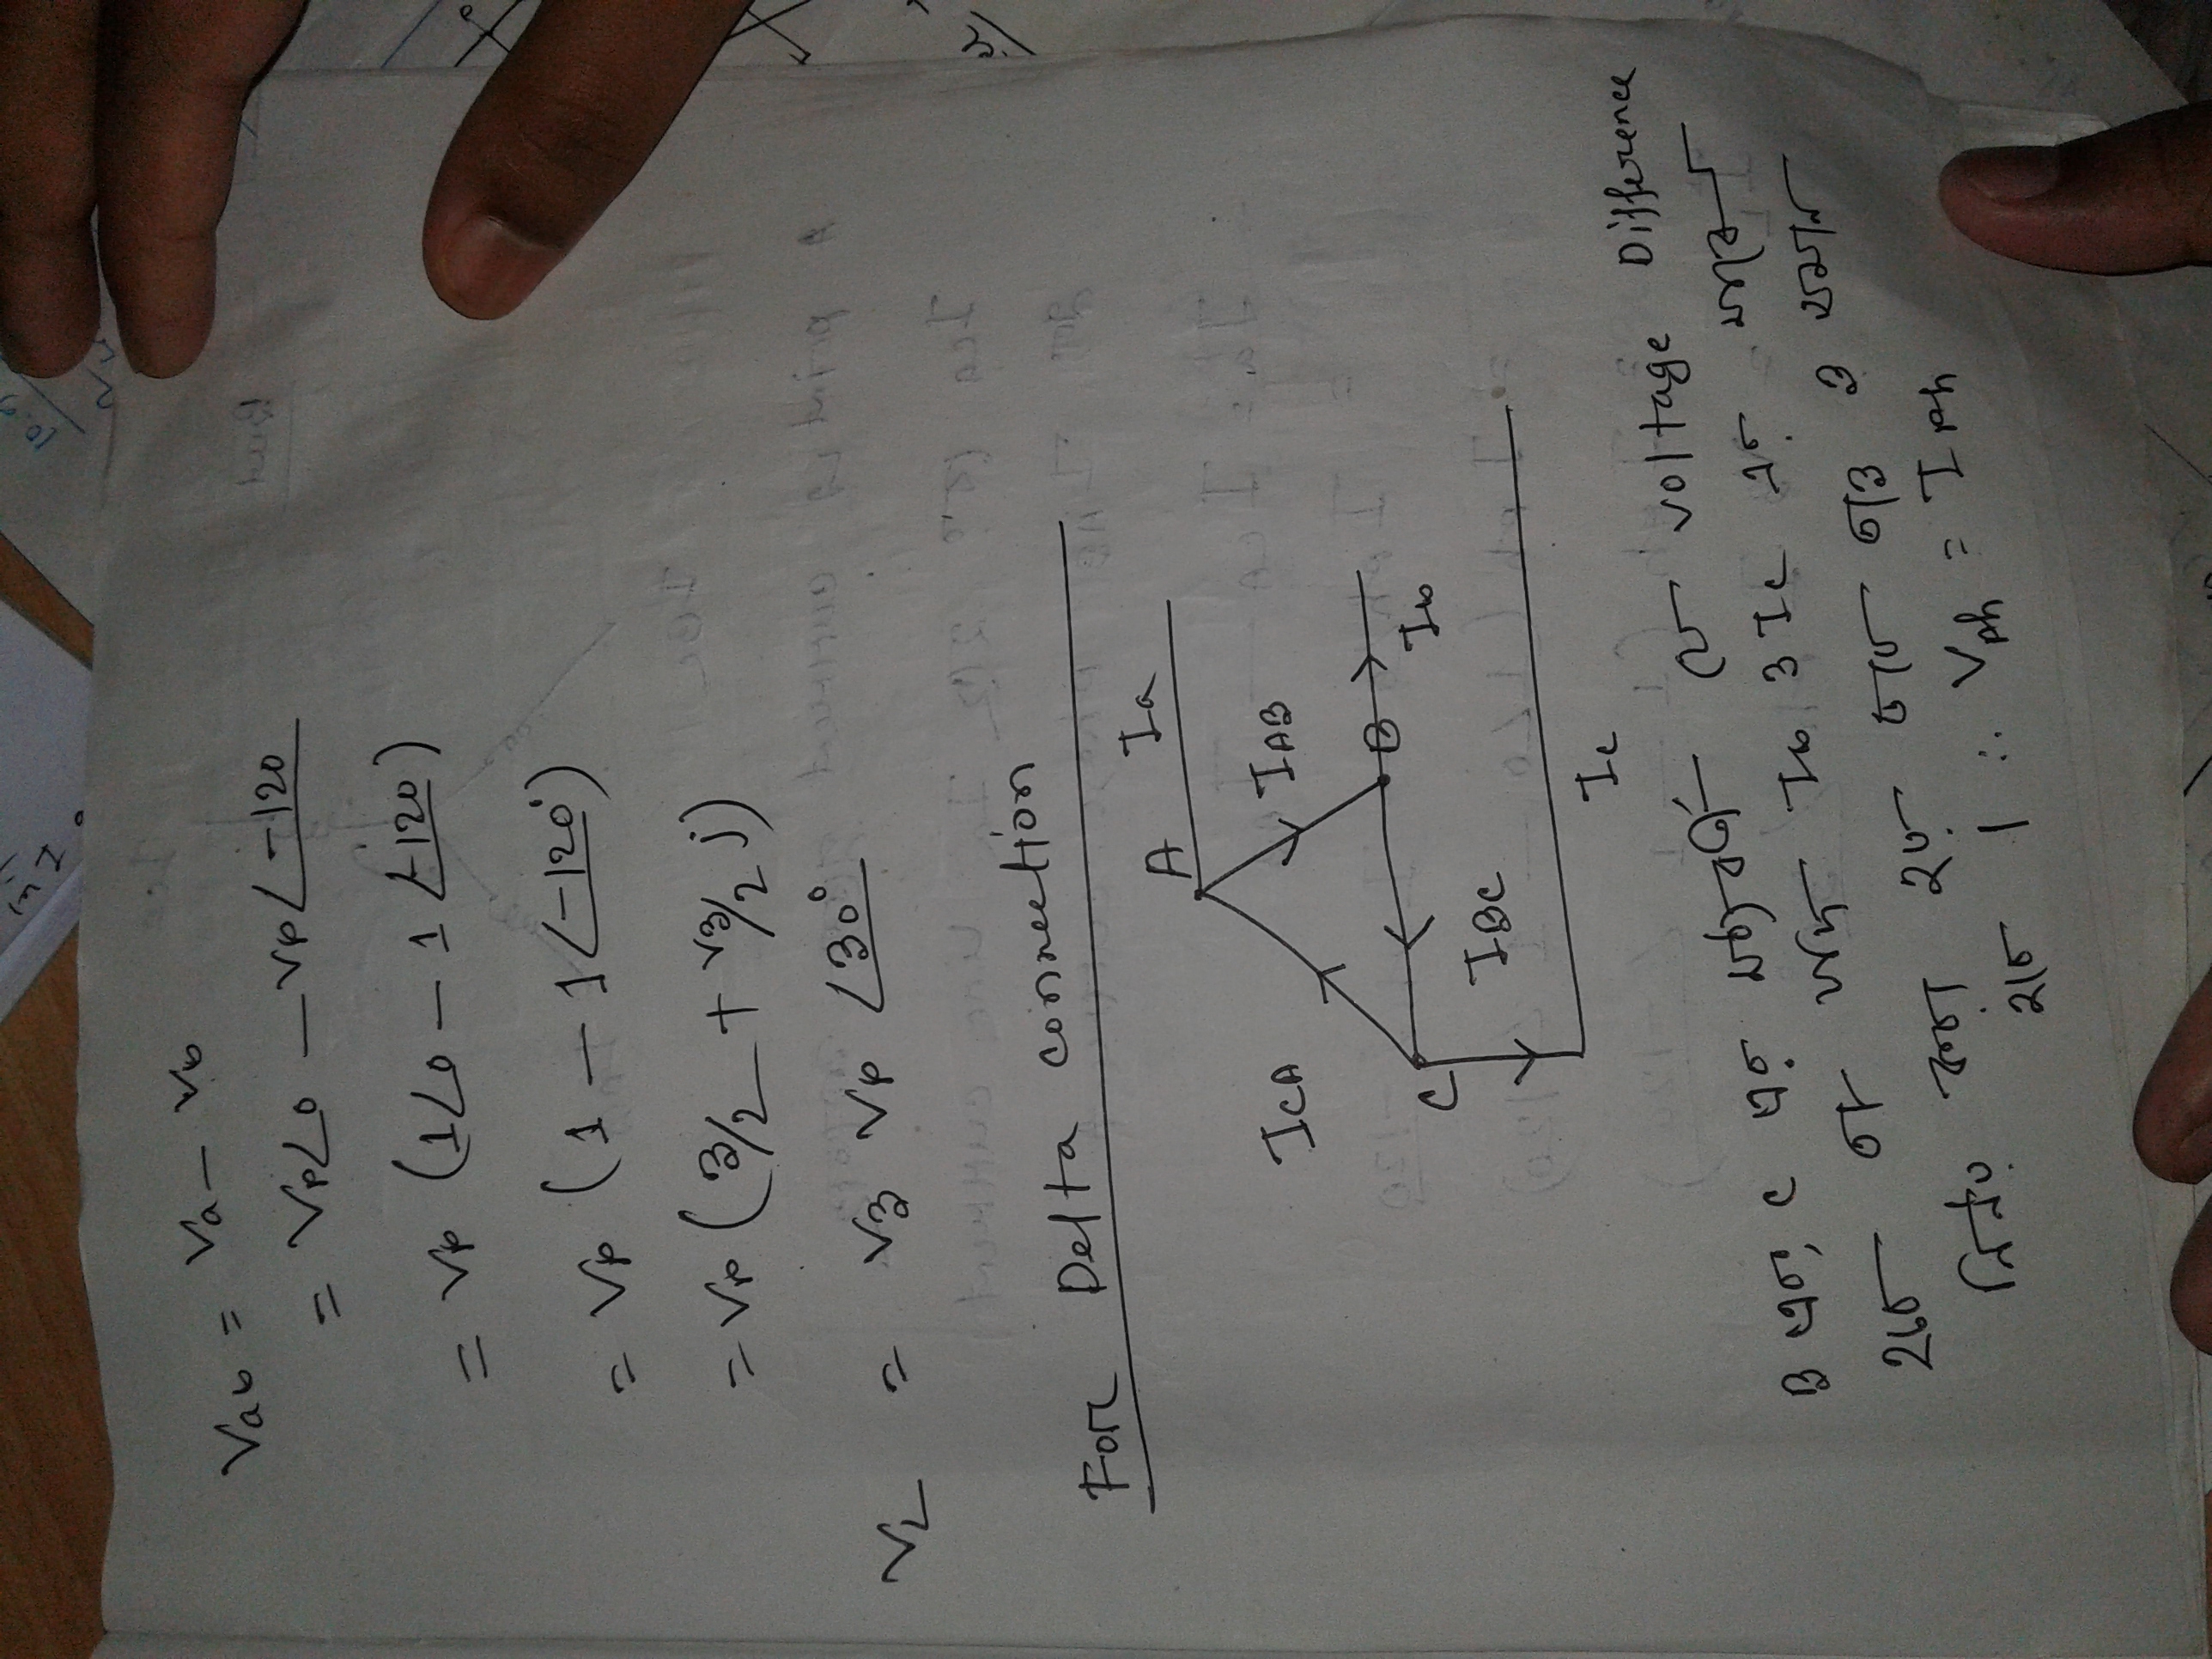 Vab = Va - Vb
= Vp∠0 - Vp∠-120
= Vp (1∠0 - 1∠-120)
= Vp (1 - 1∠-120°)
= Vp (3/2 + √3/2 j)
VL = √3 Vp ∠30°
For Delta connection
A Ia
ICA IAB
C B Ib
IBC
Ic
B এবং C এর মধ্যবর্তী যে voltage Difference
হবে তা যদি Ib ও Ic এর মধ্যে
নির্নয় করা হয় তবে তাও ও সমান
হবে । ∴ Vph = Iph